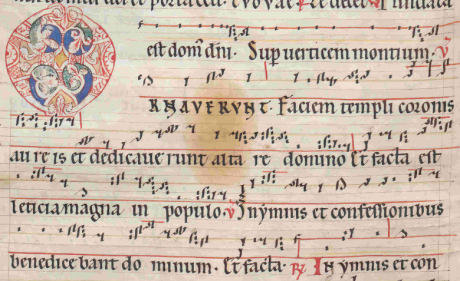 est dom dni. Sup verticem montium. V
ORNAVERUNT. Faciem templi coronis
aureis et dedicaverunt alta re domino Et facta est
leticia magna in populo. V In ymnis et confessionibus
benedicebant do minum. Et facta. R In ymnis et con